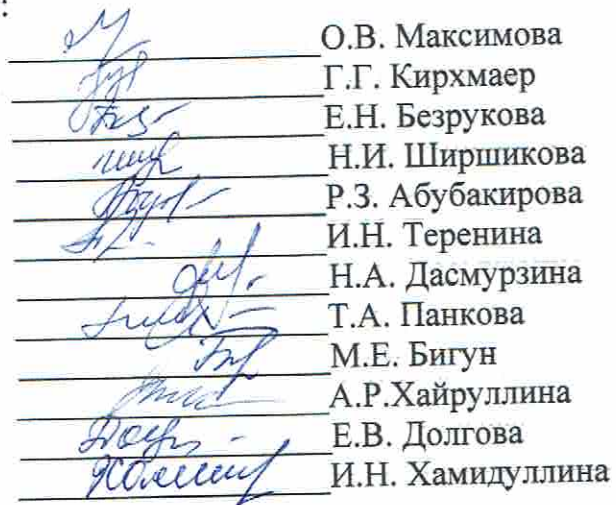 :
О.В. Максимова
Г.Г. Кирхмаер
Е.Н. Безрукова
Н.И. Ширшикова
Р.З. Абубакирова
И.Н. Теренина
Н.А. Дасмурзина
Т.А. Панкова
М.Е. Бигун
А.Р.Хайруллина
Е.В. Долгова
И.Н. Хамидуллина